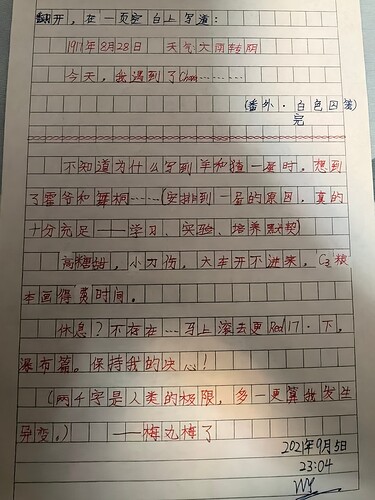 翻开，在一页空白上写道：
1917年8月28日 天气大雨转阴
今天，我遇到了Chan…………
（番外·白色囚笼）
完
不知道为什么写到羊和猹一屋时，想到
了霍爷和舞桐……（安排到一屋的原因，真的
十分充足——学习、实验、培养默契）
高糖甜，小刀伤，大车开不进来，C₂校
本画得贼时间。
休息？不存在…马上滚去更Red17·下。
瀑布篇。保持我的决心！
（两千字是人类的极限，多一更算我发生
异变。） ——梅丸梅了
2021年9月5日
23:04